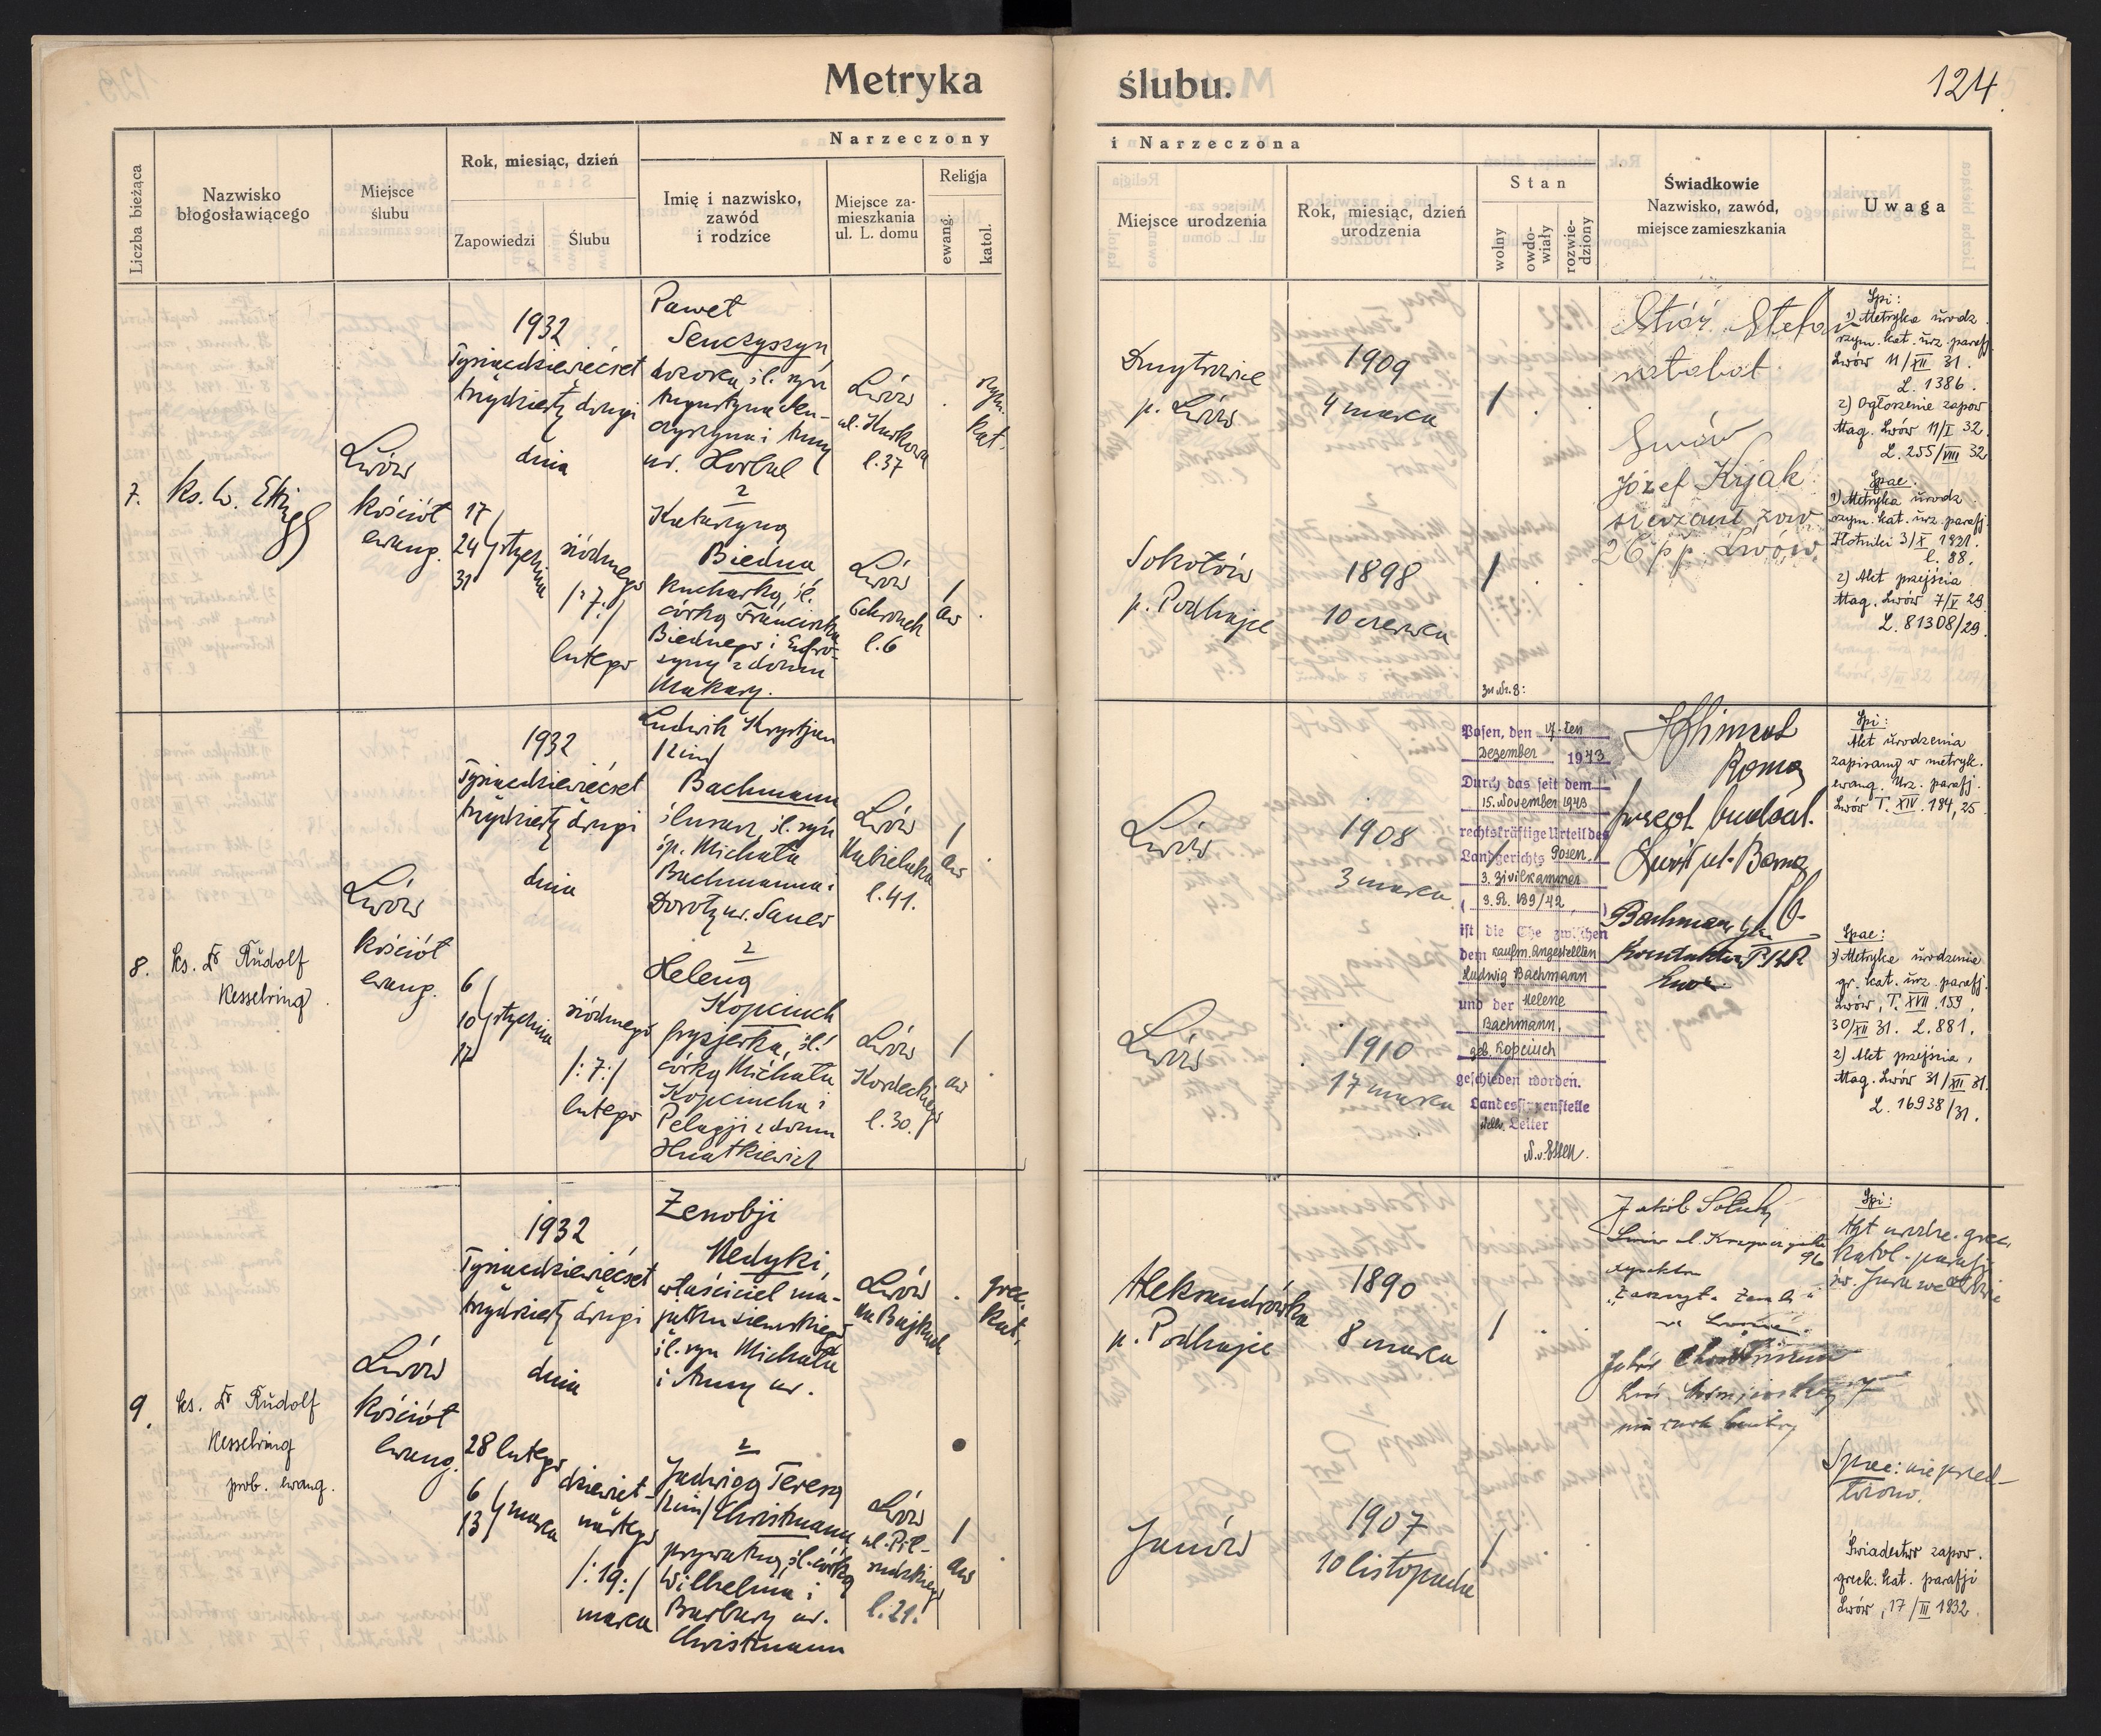 Metryka ślubu.
124
Liczba bieżąca
Nazwisko
błogosławiącego
Miejsce
ślubu
Rok, miesiąc, dzień
Zapowiedzi
Ślubu
Narzeczony
Imię i nazwisko,
zawód
i rodzice
Miejsce za-
mieszkania
ul. L. domu
Religja
ewang.
katol.
i Narzeczona
Miejsce urodzenia
Rok, miesiąc, dzień
urodzenia
Stan
wolny
owdo-
wiały
rozwie-
dziony
Świadkowie
Nazwisko, zawód,
miejsce zamieszkania
Uwaga
7.
Ks. W.
Lwów
kościół
ewang.
1932
Tysiącdziewięćset
trzydzieści drugi
dnia
17
24
31
stycznia
siódmego
/:7:/
lutego
Paweł
Senczyszyn
dozorca, śl. syn
Augustyna Sen-
czyszyna i Anny
ur. Horbal
z
Katarzyną
Biedna
kucharka, śl.
córka Franciszka
Biednego i Eufro-
zyny z domu
Makary.
Lwów
ul. Kurkowa
l. 37
rzym.
kat.
Lwów
Ochronek
l. 6
1
aw
Dmytrowice
p. Lwów
1909
4 marca
1
Sokołów
p. Podhajce
1898
10 czerwca
1
Stefan
Lwów
Józef Kijak
sierżant zaw.
26 p p. Lwów.
Spi:
1) Metryka urodz.
rzym. kat. urz. parafj.
Lwów 11/XII 31.
L. 1386.
2) Ogłoszenie zapow
Mag. Lwów 11/I 32.
L. 255/VIII 32
Spae.
1) Metryka urodz.
rzym. kat. urz. parafj.
Złotniki 3/X 1921.
l. 88.
2) Akt przejścia
Mag. Lwów 7/V 29.
L. 81308/29.
8.
Ks. Dr Rudolf
Kesselring.
Lwów
kościół
ewang.
1932
Tysiącdziewięćset
trzydzieści drugi
dnia
6
10
17
stycznia
siódmego
/:7:/
lutego
Ludwik Krystjan
/2im/
Bachmann
ślusarz, śl. syn
śp. Michała
Bachmanna i
Doroty ur. Sauer
z
Heleną
Kopciuch
fryzjerka, śl.
córka Michała
Kopciucha i
Pelagji z domu
Hnatkiewicz
Lwów
Nabielaka
l. 41.
1
aw
Lwów
Kordeckiego
l. 30.
1
aw
Lwów
1908
3 marca
Lwów
1910
17 marca
zu Nr. 8:
Posen, den 17.ten
Dezember 1943
Durch das seit dem
15. November 1943
rechtskräftige Urteil des
Landgerichts Posen,
3. Zivilkammer
( 3. R. 189/42 )
ist die Ehe zwischen
dem kaufm. Angestellten
Ludwig Bachmann
und der Helene
Bachmann,
geb. Kopciuch
geschieden worden.
Landessippenstelle
Leiter
Spi:
Akt urodzenia
zapisany w metryk.
ewang. Urz. parafj.
Lwów T. XIV. 184, 25
Spae:
1) Metryka urodzenia
gr. kat. urz. parafj.
Lwów, T. XVII. 159,
30/XII 31. L. 881.
2) Akt przejścia,
Mag. Lwów 31/XII 31.
L. 16938/31.
9.
Ks. Dr Rudolf
Kesselring
prob. ewang.
Lwów
kościół
ewang.
1932
Tysiącdziewięćset
trzydzieści drugi
dnia
28 lutego
6
13
marca
dziewięt-
nastego
/:19:/
marca
Zenobji
Medycki,
właściciel ma-
jątku ziemskiego
śl. syn Michała
i Anny ur.
z
Jadwigą Teresą
/2im/ Christmann
prywatną, śl. córką
Wilhelma i
Barbary ur.
Christmann
Lwów
na Bajkach
grec.
kat.
Lwów
ul. Pił-
sudskiego
l. 21.
1
aw
Aleksandrówka
p. Podhajce
1890
8 marca
1
Janów
1907
10 listopada
1
Spi:
Akt urodze. grec.
katol. parafji
św. Jura we Lwowie
Spae: nie przed-
łożono.
Świadectwo zapow.
greck. kat. parafji
Lwów, 17/III 1932.